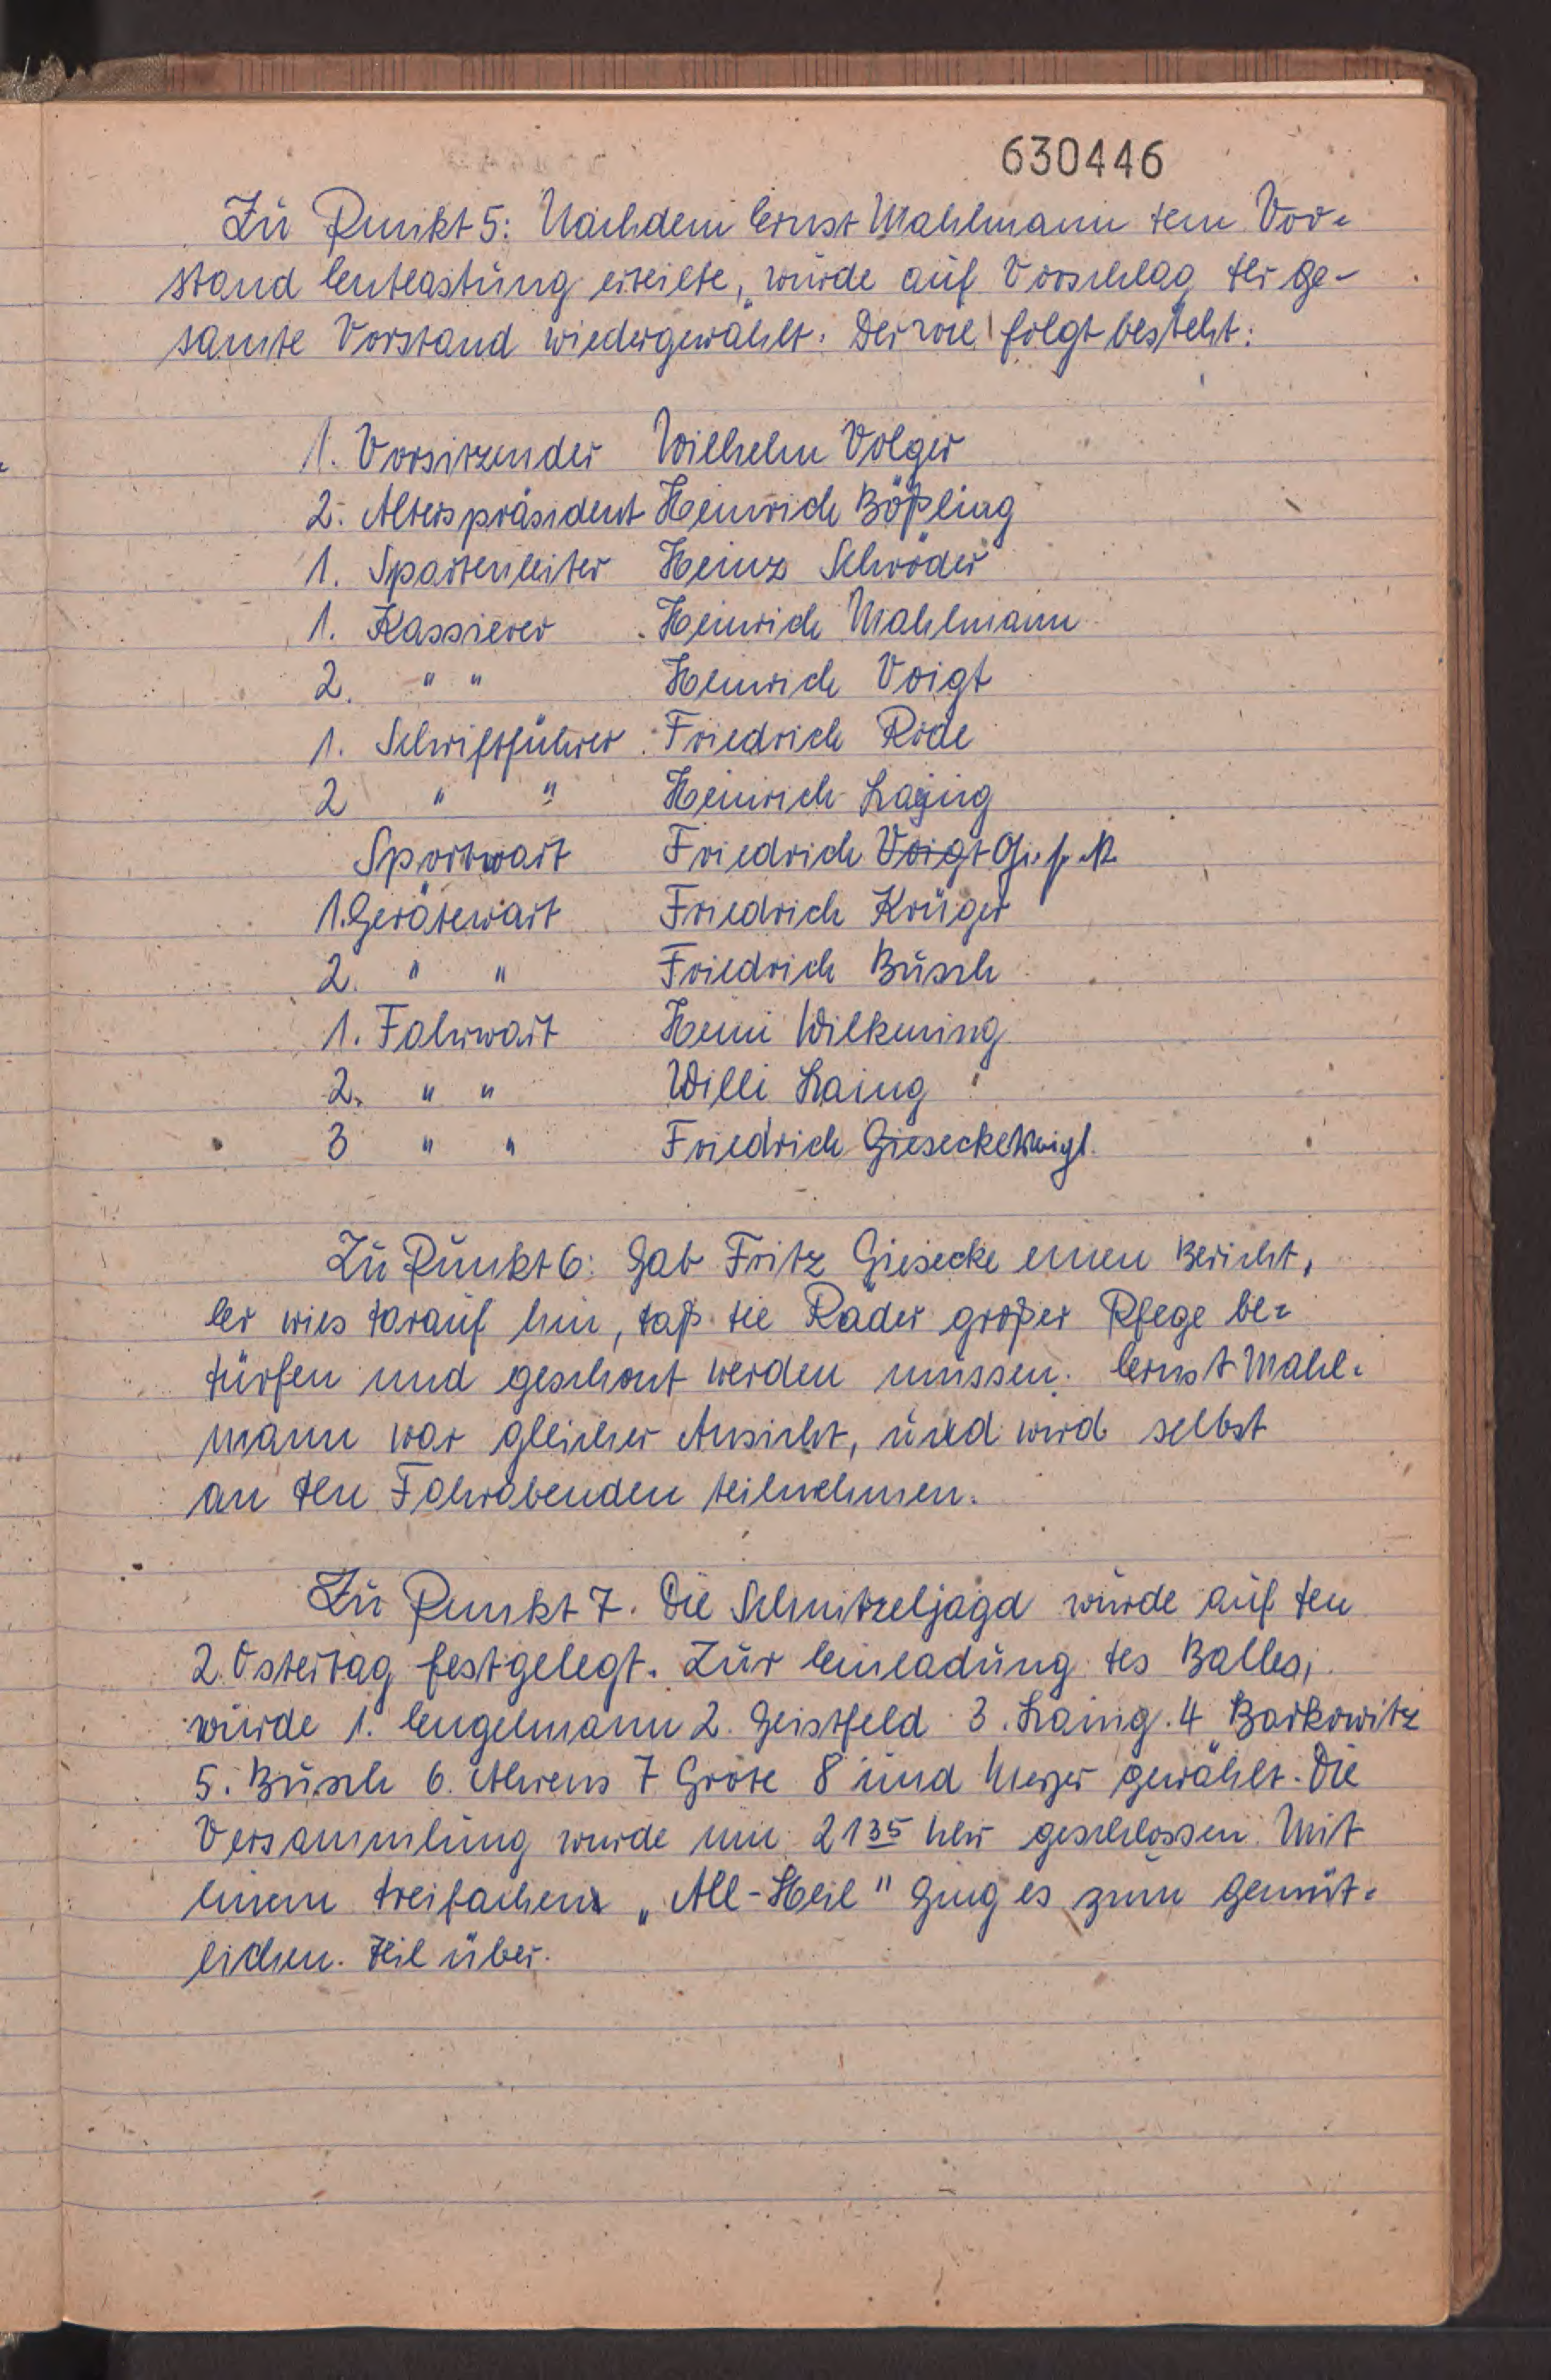 630446
Zu Punkt 5: Nachdem Ernst Mahlmann dem Vor-
stand Entlastung erteilte, wurde auf Vorschlag der ge-
samte Vorstand wiedergewählt. Der wie folgt besteht:
1. Vorsitzender Wilhelm Volger
2. Alterspräsident Heinrich Bößling
1. Spartenleiter Heinz Schröder
1. Kassierer Heinrich Mahlmann
2. " " Heinrich Voigt
1. Schriftführer Friedrich Rode
2 " " Heinrich Laging
Sportwart Friedrich Voigt
1. Gerätewart Friedrich Krüger
2. " " Friedrich Busch
1. Fahrwart Heini Wilkening
2. " " Willi Laing
3 " " Friedrich Giesecke Voigt.
Zu Punkt 6: Gab Fritz Giesecke einen Bericht,
Er wies darauf hin, daß die Räder großer Pfege be-
dürfen und geschont werden müssen. Ernst Mahl-
mann war gleicher Ansicht, und wird selbst
an den Fahrabenden teilnehmen.
Zu Punkt 7. Die Schnitzeljagd wurde auf den
2. Ostertag festgelegt. Zur Einladung des Balles,
wurde 1. Engelmann 2. Geistfeld 3. Laing. 4 Barkowitz
5. Busch 6. Ahrens 7 Grote 8 und Meyer gewählt. Die
Versammlung wurde um 21 35 Uhr geschlossen. Mit
einem dreifachen „All-Heil" ging es zum gemüt-
lichen. Teil über.